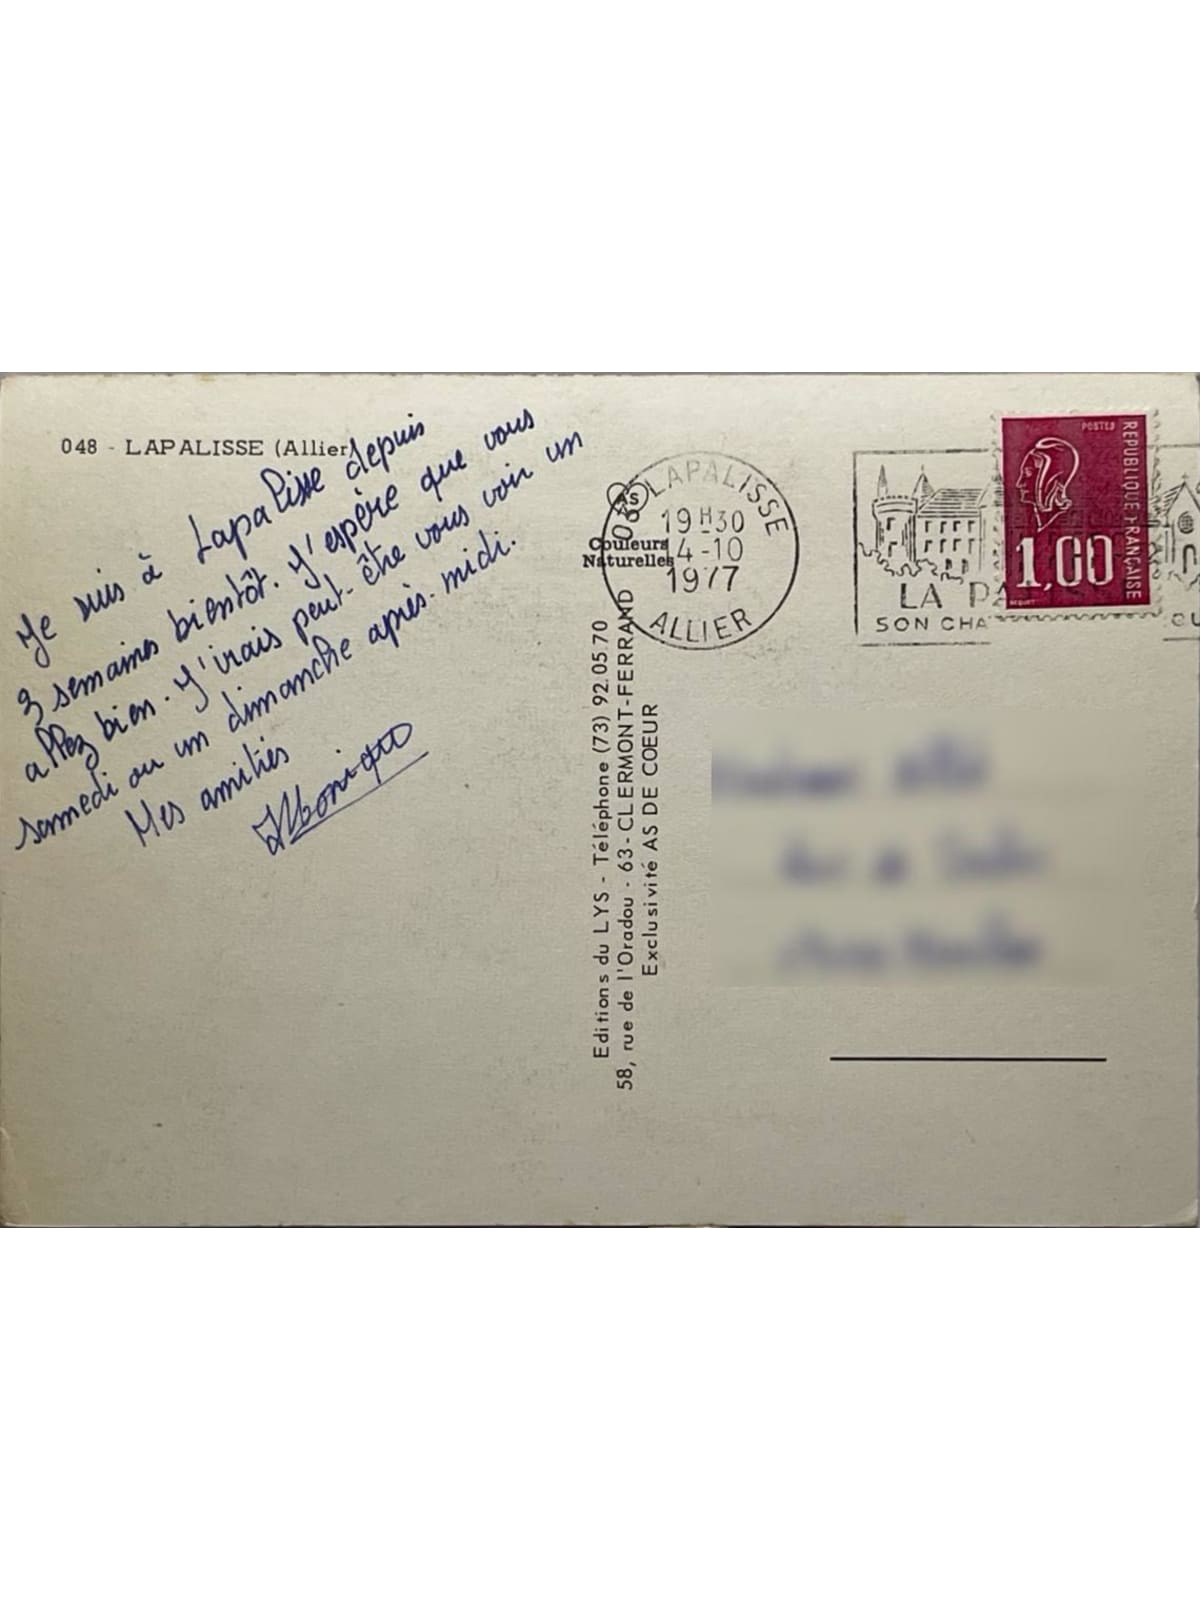 048 - LAPALISSE (Allier)
Je suis à Lapalisse depuis
3 semaines bientôt. J'espère que vous
allez bien. J'irais peut-être vous voir un
samedi ou un dimanche après-midi.
Mes amitiés
Monique
Editions du LYS - Téléphone (73) 92.05.70
58, rue de l'Oradou - 63 - CLERMONT-FERRAND
Exclusivité AS DE COEUR
AS
Couleurs
Naturelles
LAPALISSE
19H30
4-10
1977
ALLIER
LA PA
SON CHA
POSTES
REPUBLIQUE FRANÇAISE
1,00